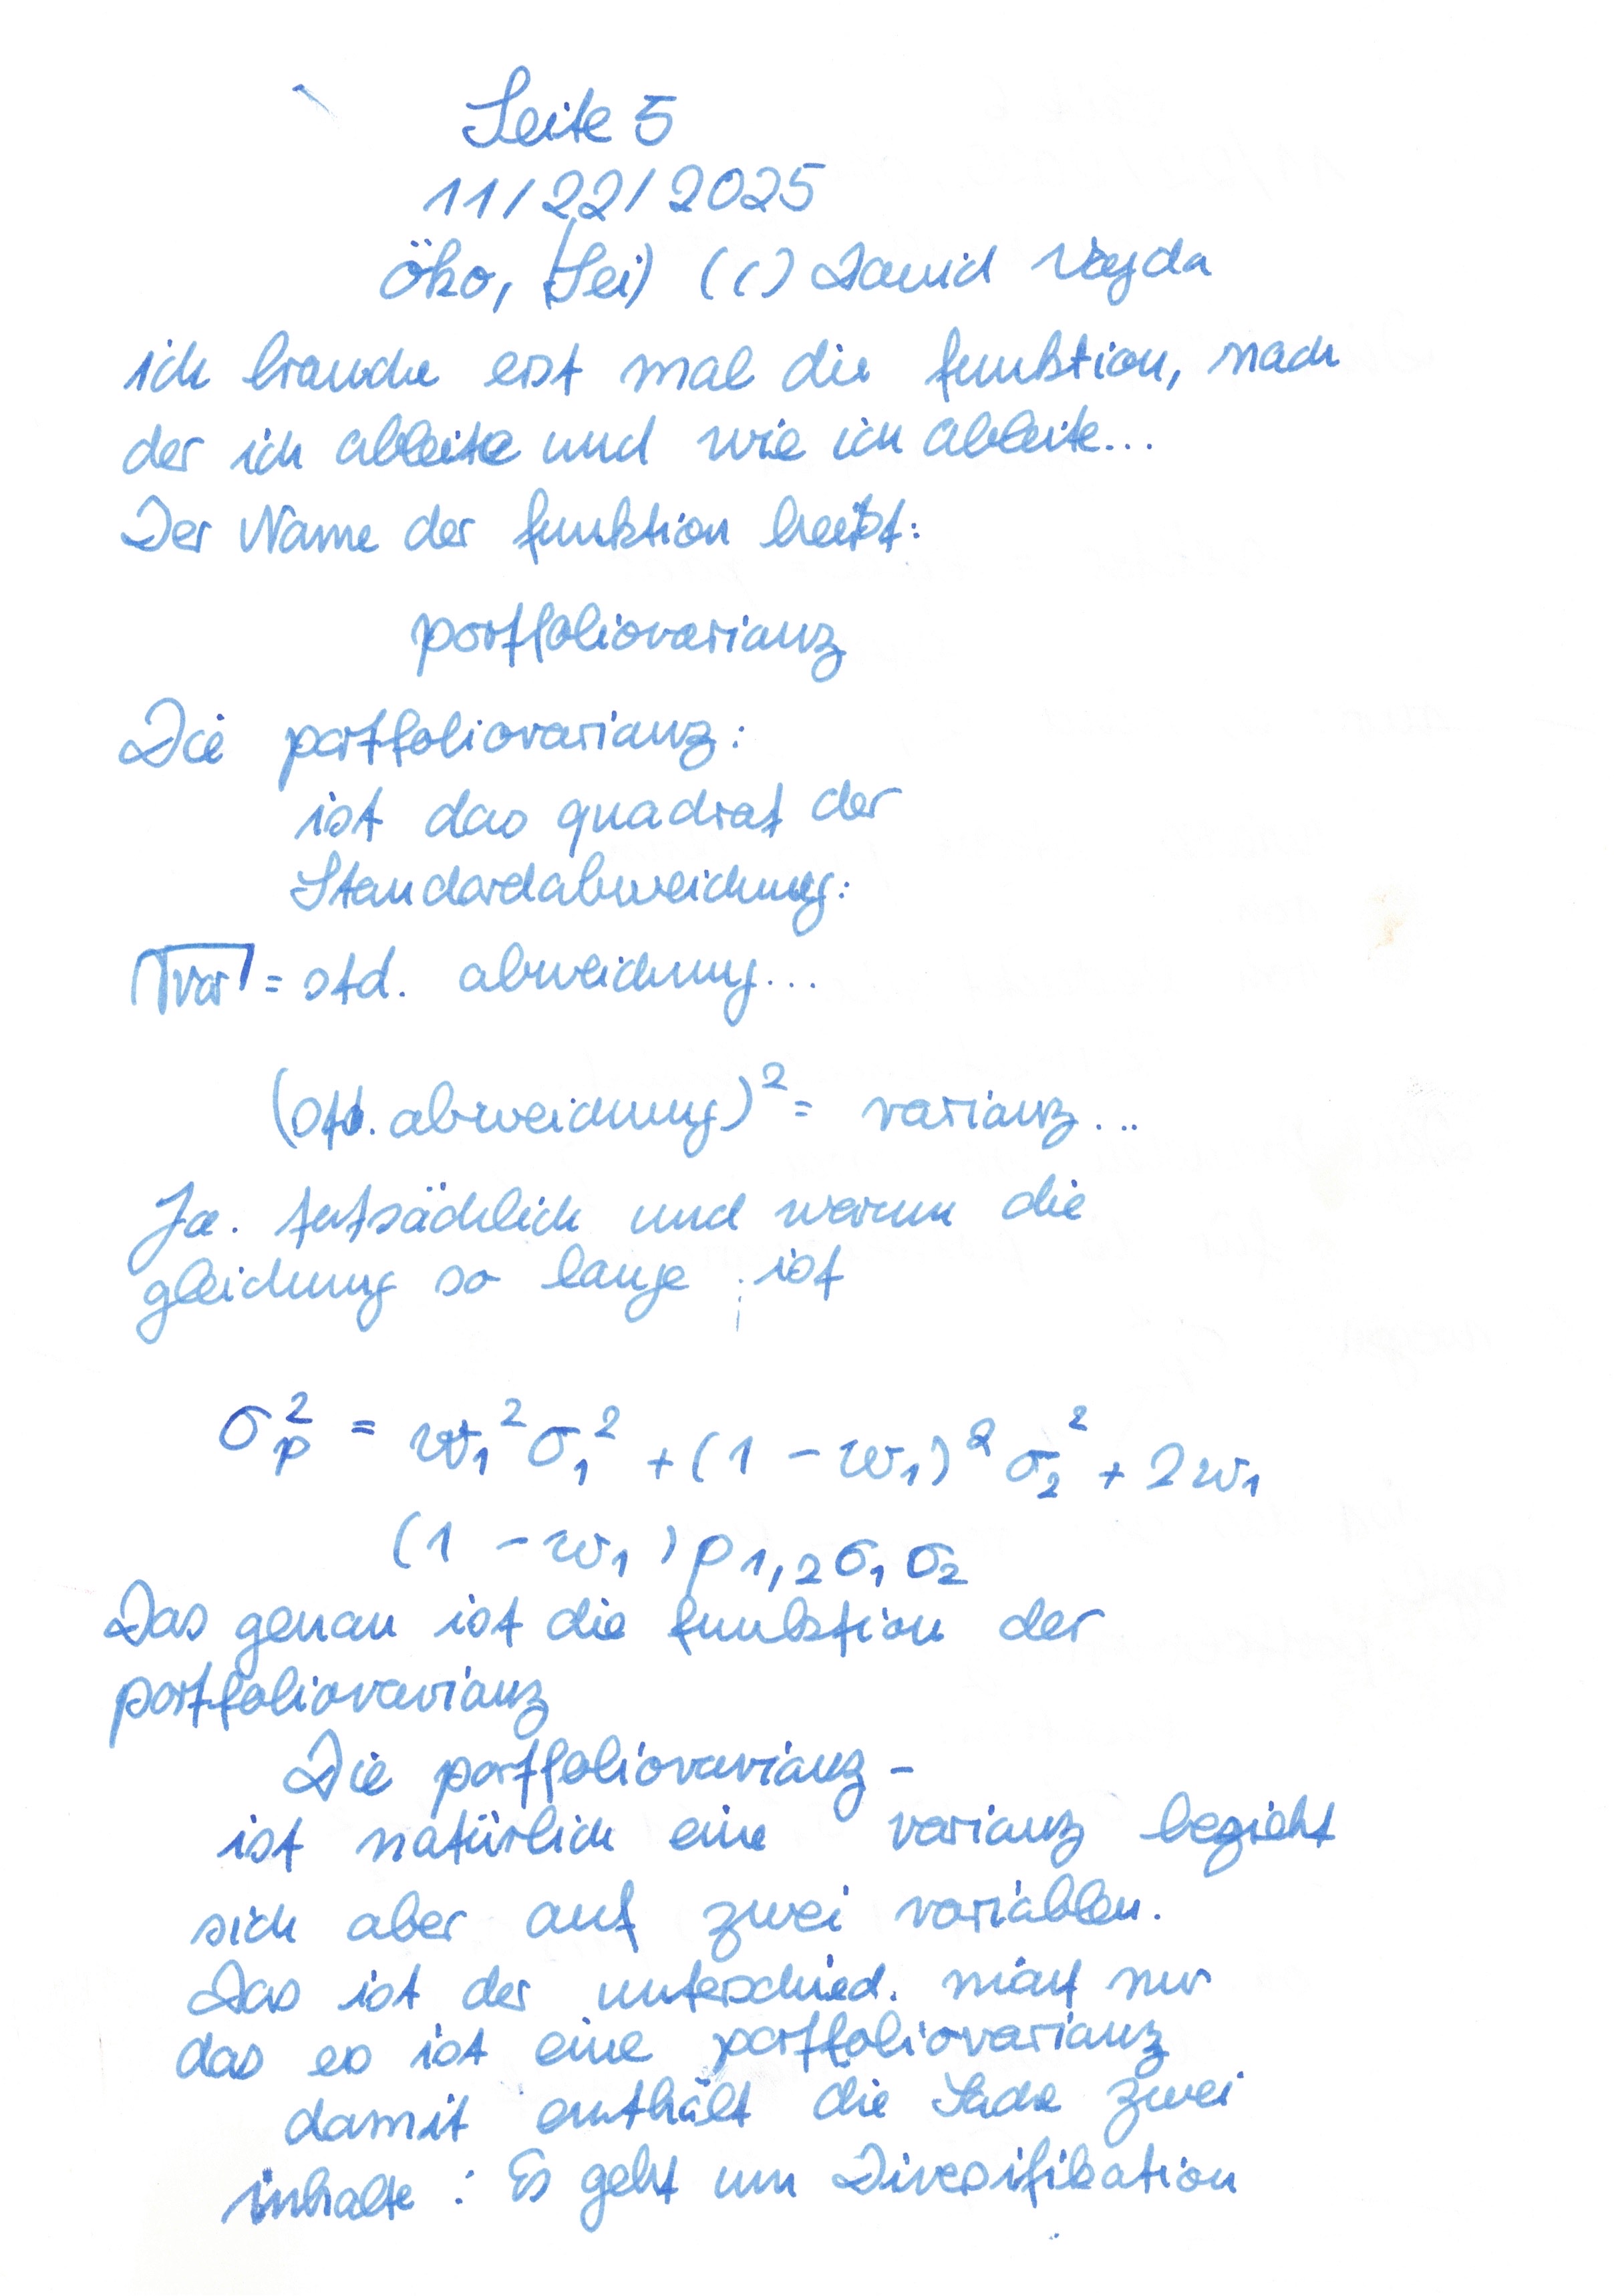 Seite 5
11/22/2025
öko, (Sei) (C) David Vajda
ich brauche erst mal die funktion, nach
der ich ableite und wie ich ableite...
Der Name der funktion heißt:
portfoliovarianz
Die portfoliovarianz:
ist das quadrat der
Standardabweichung:
√var = std. abweichung...
(std. abweichung)² = varianz...
Ja. tatsächlich und warum die
gleichung so lange ist
σₚ² = w₁²σ₁² + (1 - w₁)²σ₂² + 2w₁
(1 - w₁)ρ₁,₂σ₁σ₂
Das genau ist die funktion der
portfoliovarianz
Die portfoliovarianz -
ist natürlich eine varianz bezieht
sich aber auf zwei variablen.
Das ist der unterschied. nicht nur
das es ist eine portfoliovarianz
damit enthält die Sache zwei
inhalte: Es geht um Diversifikation